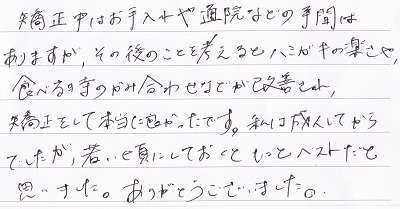 矯正中はお手入れや通院などの手間は
ありますが、その後のことを考えるとハミガキの楽さや、
食べる時のかみ合わせなどが改善され、
矯正をして本当に良かったです。私は成人してから
でしたが、若い頃にしておくともっとベストだと
思いました。ありがとうございました。